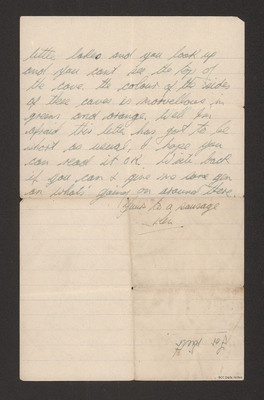 little lakes and you look up
and you cant see the top of
the cave. the colour of the sides
of these caves is marvellous in
greens and orange. Well I'm
afraid this letter has got to be
short as usual, & I hope you
can read it O.K. Write back
if you can & give us some gen
on what's going on around there.
Yours to a sausage
Ken